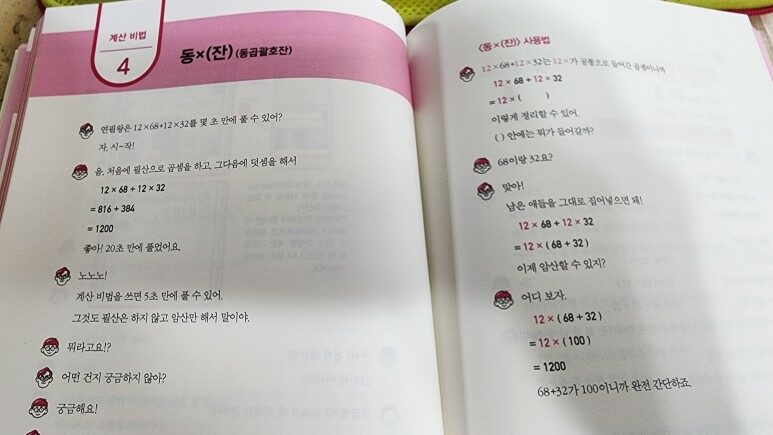 계산 비법
4
동×(잔) (동곱괄호잔)
연필왕은 12×68+12×32를 몇 초 만에 풀 수 있어?
자, 시~작!
음, 처음에 필산으로 곱셈을 하고, 그다음에 덧셈을 해서
12 × 68 + 12 × 32
= 816 + 384
= 1200
좋아! 20초 만에 풀었어요.
노노노!
계산 비법을 쓰면 5초 만에 풀 수 있어.
그것도 필산은 하지 않고 암산만 해서 말이야.
뭐라고요!?
어떤 건지 궁금하지 않아?
궁금해요!
《동×(잔)》 사용법
12×68+12×32는 12×가 공통으로 들어간 곱셈이니까
12 × 68 + 12 × 32
= 12 × ( )
이렇게 정리할 수 있어.
( ) 안에는 뭐가 들어갈까?
68이랑 32요?
맞아!
남은 애들을 그대로 집어넣으면 돼!
12 × 68 + 12 × 32
= 12 × ( 68 + 32 )
이제 암산할 수 있지?
어디 보자.
12 × ( 68 + 32 )
= 12 × ( 100 )
= 1200
68+32가 100이니까 완전 간단하죠